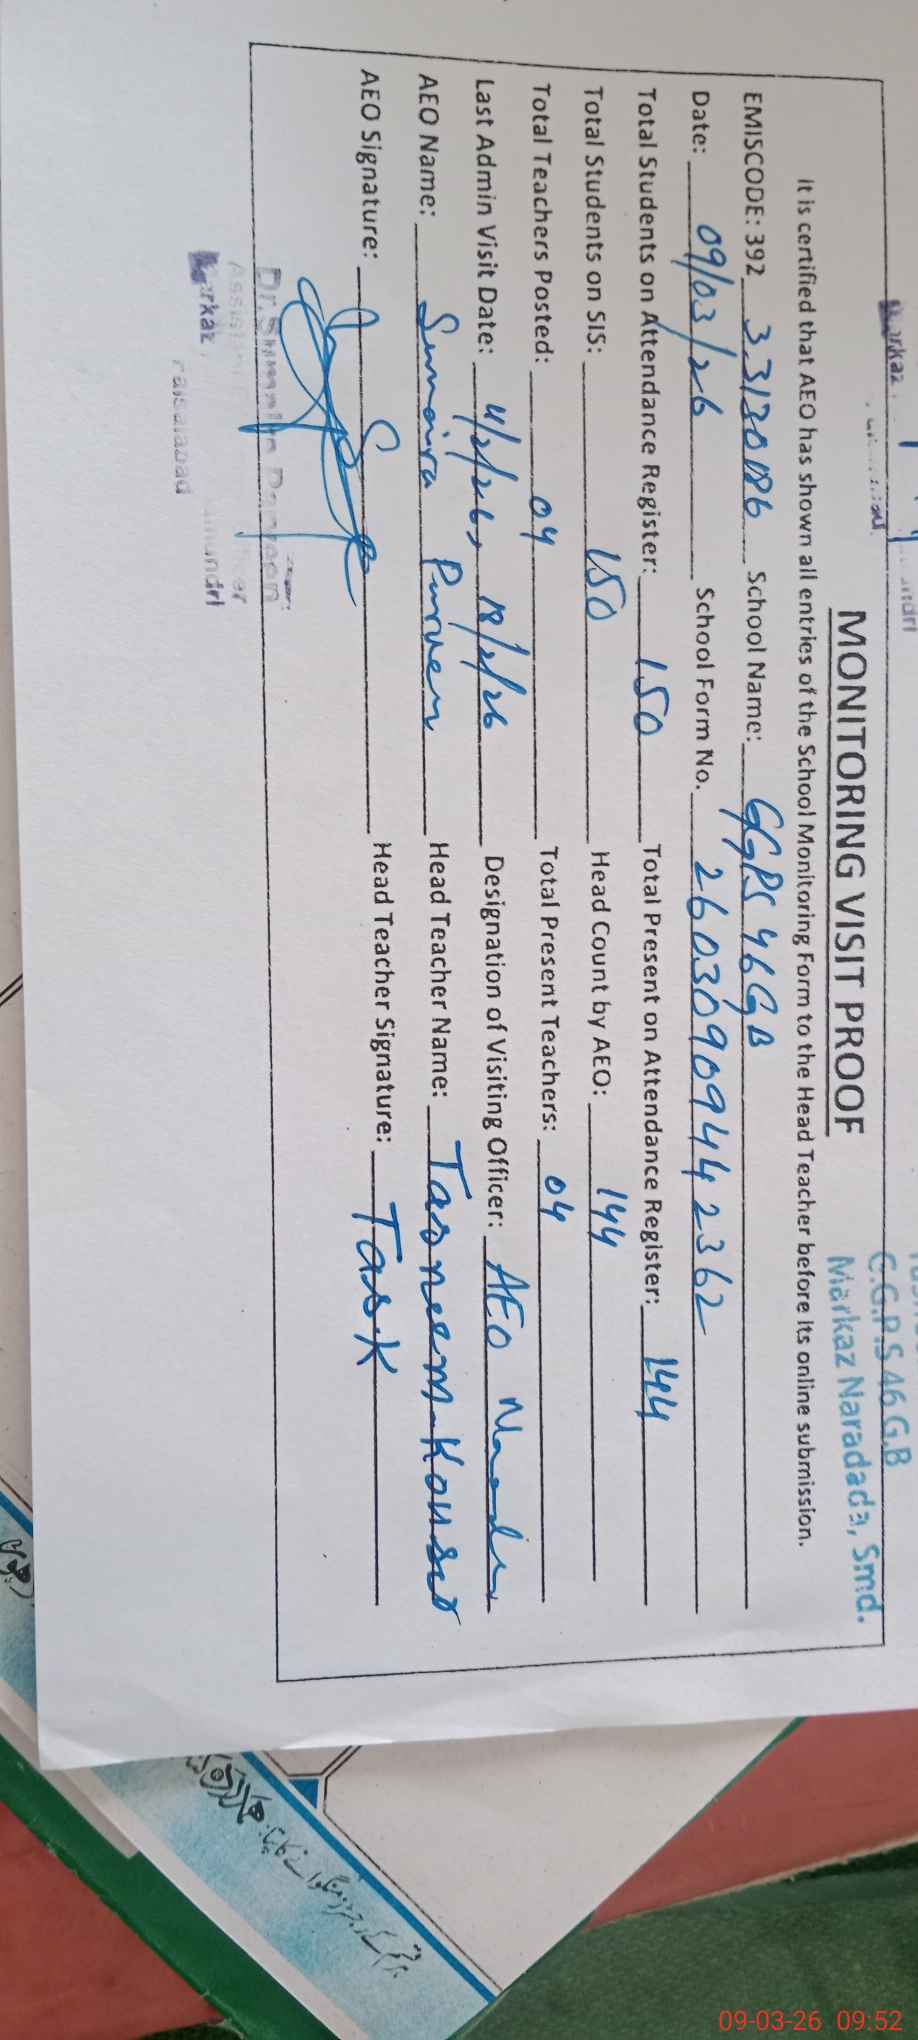 C.G.P.S 46 G.B
Markaz Naradada, Smd.
MONITORING VISIT PROOF
It is certified that AEO has shown all entries of the School Monitoring Form to the Head Teacher before its online submission.
EMISCODE: 392 33130186 School Name: GGPS 46GB
Date: 09/03/26 School Form No. 2603090944 2362
Total Students on Attendance Register: 150 Total Present on Attendance Register: 144
Total Students on SIS: 150 Head Count by AEO: 144
Total Teachers Posted: 04 Total Present Teachers: 04
Last Admin Visit Date: 4/2/26, 18/2/26 Designation of Visiting Officer: AEO
AEO Name: Sumaira Parveen Head Teacher Name: Tasneem Kousar
AEO Signature: Head Teacher Signature: Tas.K
Markaz
Faisalabad
09-03-26 09:52